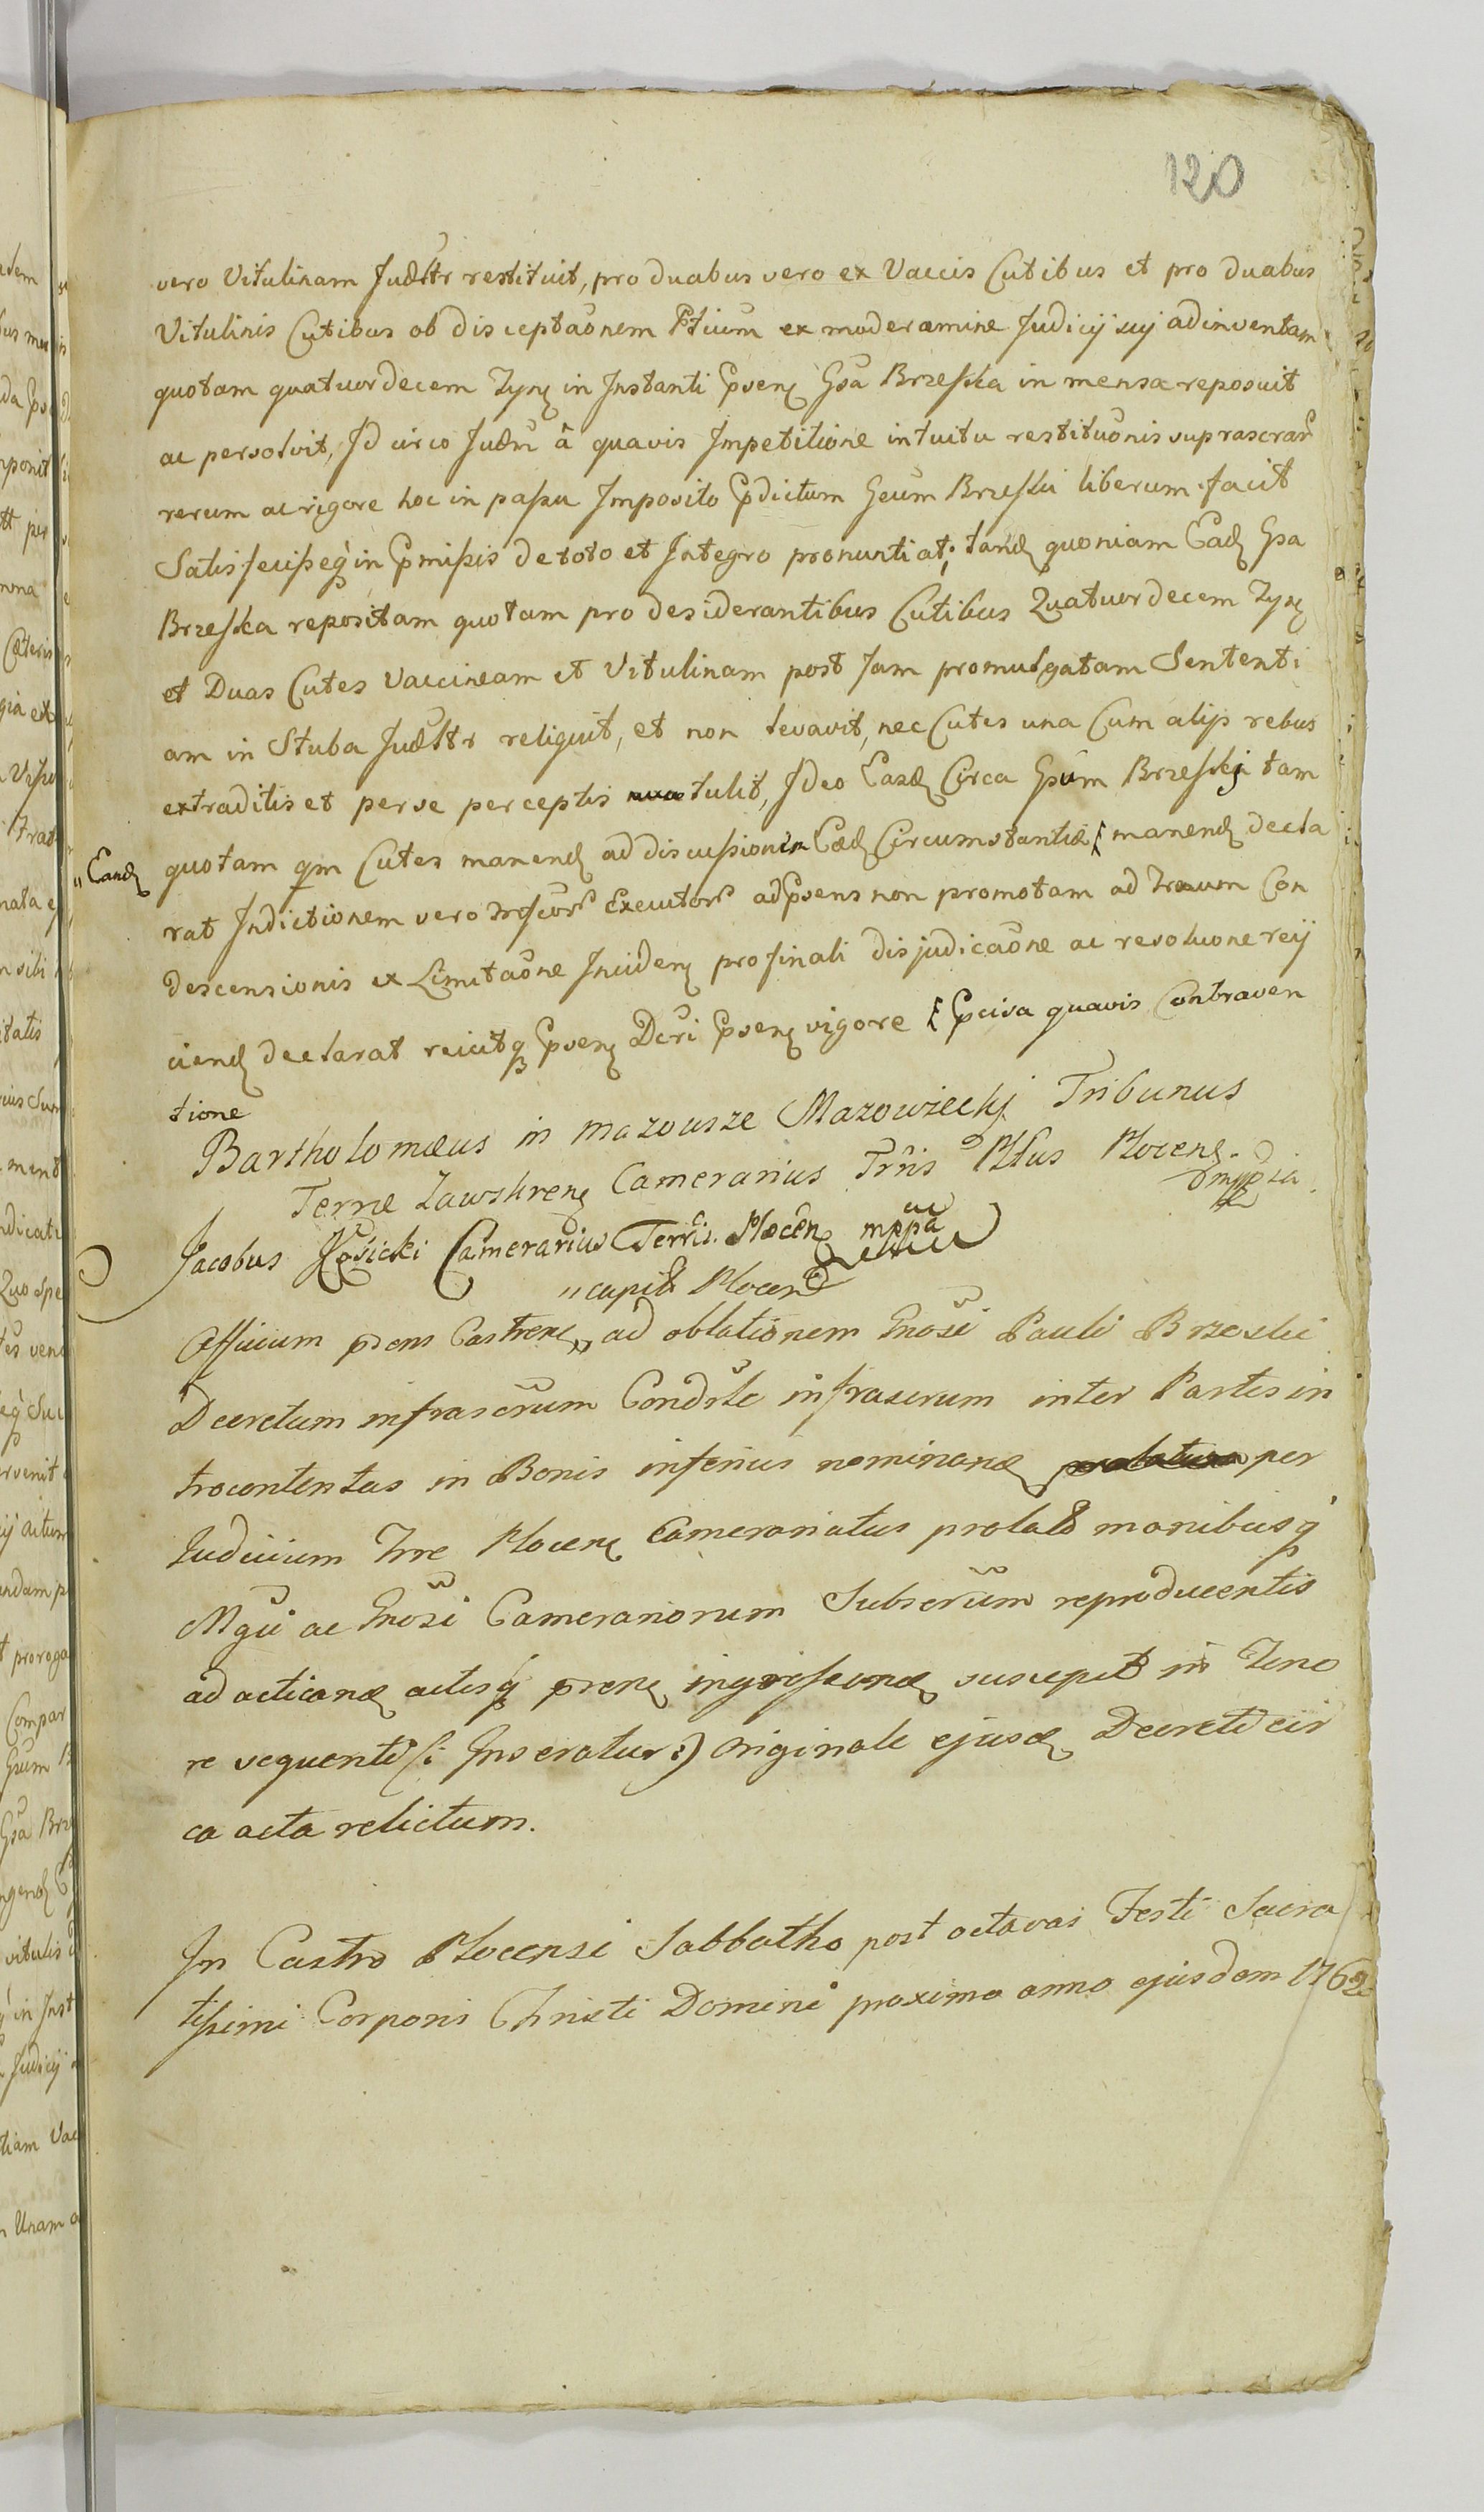 120
vero Vitulinam Judltr restituit, pro duabus vero ex Vaccis Cutibus et pro duabus
Vitulinis Cutibus ob disceptaõnem Ptium ex moderamine Judicij sui adinventam
quotam quatuordecem Tynỹ in Instanti Gsa Brzeska in mensa reposuit
ac persolvit, Id circo Judm â quavis Impetitione intuitu restituõnis suprascrar
rerum ac rigore hoc in passu Imposito Epdictum Gsum Brzeski liberum facit
Satisfecisseq̃ in Epmissis de toto et Integro pronuntiat; tand quoniam Ead Gsa
Brzeska repositam quotam pro desiderantibus Cutibus Quatuordecem Tyn
et Duas Cutes Vaccineam et Vitulinam post Jam promulgatam Sententi
am in Stuba Judltr reliquit, et non levavit, nec Cutes una Cum alijs rebus
extraditis et per se perceptis tulit, Ideo Easd Circa Gsum Brzeskj tam
"Eand
quotam qm Cutes manend ad discussionem Ead Circumstantiæ manend decla
rat Indictionem vero Executor ad Epsens non promotam ad Con
descensionis ex Limitaõne Inciden pro finali disjudicaõne ac resoluone reij
ciend declarat reicitq Epsen Dcri Epsen vigore Epcisa quavis Contraven
tione
Bartholomæus in Mazowsze Mazowieckj Tribunus
Terræ Zawskren Camerarius Trris Pltus Plocens
mppia
Jacobus Kosicki Camerarius Terris. Plocen mppa
"capit Plocen
Officium prens Castren, ad oblationem Gnosi Pauli Brzeski
Decretum infrascrum Condste infrascrum inter Partes in
trocontentas in Bonis inferius nominand per
Judicium Trre Plocen Camerariatus prolat manibusq
Mgci ac Gnosi Camerariorum Subscrum reproducentis
ad acticand actisq pren ingrossand suscepit in Teno
re sequenti (: Inseratur :) Originale ejusd Decreti cir
ca acta relictum.
In Castro Plocensi Sabbatho post octavas Festi Sacra
tissimi Corporis Christi Domini proximo anno ejusdem 1762